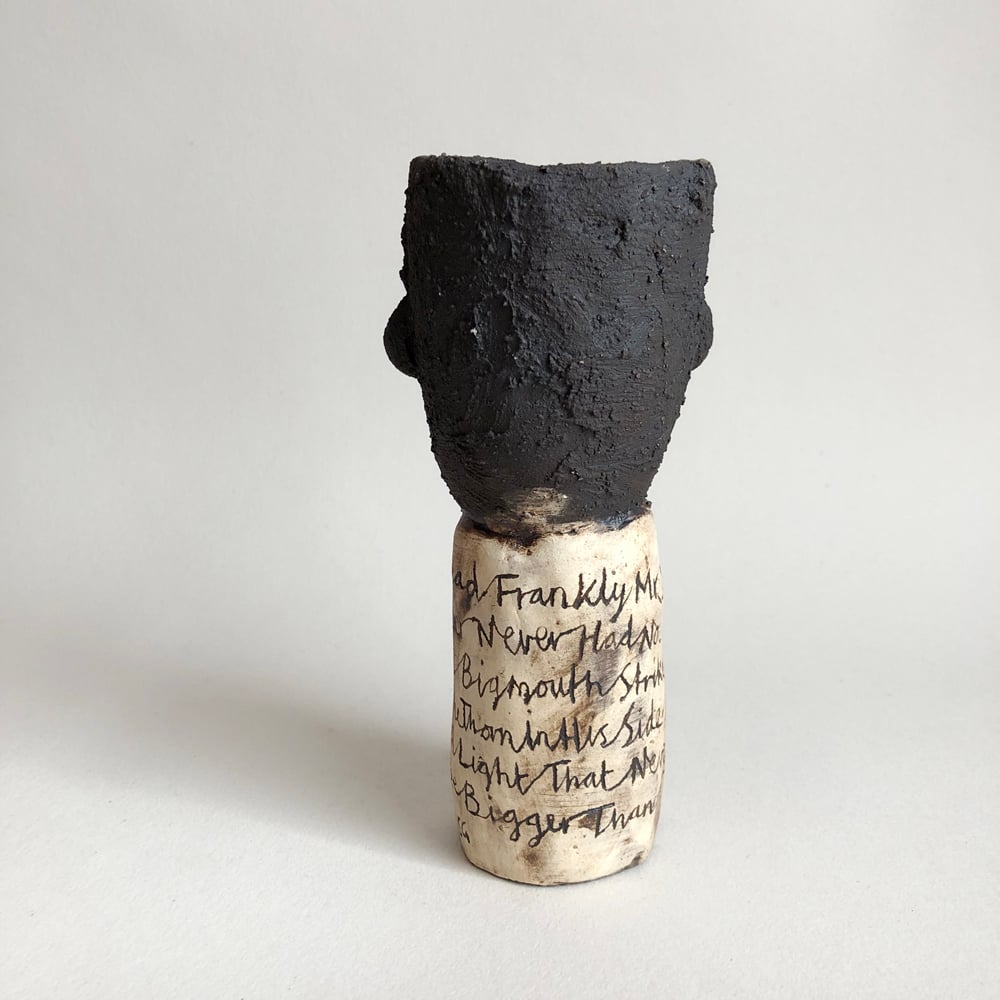 ad Frankly Mr
Never Had No
Bigmouth Strik
Than in His Side
Light That Ne
Bigger Than